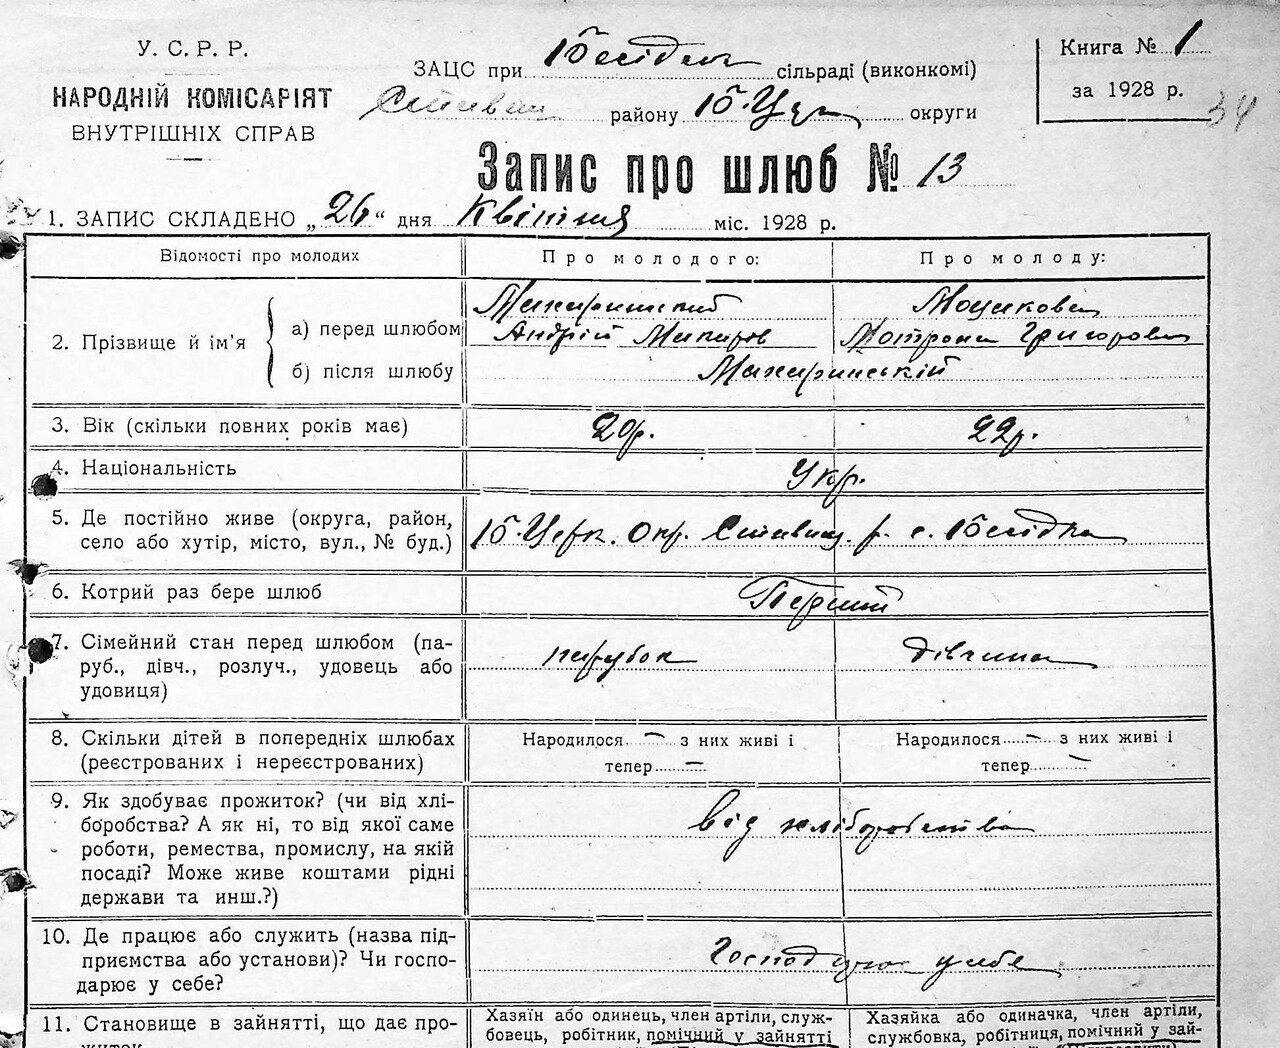 У. С. Р. Р.
НАРОДНІЙ КОМІСАРІЯТ
ВНУТРІШНІХ СПРАВ
ЗАЦС при Бесідск сільраді (виконкомі)
Ставищ району Б. Цер округи
Книга № 1
за 1928 р.
34
Запис про шлюб № 13
1. ЗАПИС СКЛАДЕНО „26“ дня Квітня міс. 1928 р.
Відомості про молодих
Про молодого:
Про молоду:
2. Прізвище й ім'я
а) перед шлюбом
Андрій Макаров
Мотрона Григорова
б) після шлюбу
3. Вік (скільки повних років має)
20р.
22р.
4. Національність
Укр.
5. Де постійно живе (округа, район,
село або хутір, місто, вул., № буд.)
Б. Церк. Окр. Ставищ. р. с. Бесідка
6. Котрий раз бере шлюб
Перший
7. Сімейний стан перед шлюбом (па-
руб., дівч., розлуч., удовець або
удовиця)
парубок
дівчина
8. Скільки дітей в попередніх шлюбах
(реєстрованих і нереєстрованих)
Народилося — з них живі і
тепер —
Народилося — з них живі і
тепер —
9. Як здобуває прожиток? (чи від хлі-
боробства? А як ні, то від якої саме
роботи, ремества, промислу, на якій
посаді? Може живе коштами рідні
держави та инш.?)
від хліборобства
10. Де працює або служить (назва під-
приємства або установи)? Чи госпо-
дарює у себе?
Господарює у себе
11. Становище в зайнятті, що дає про-
житок
Хазяїн або одинець, член артіли, служ-
бовець, робітник, помічний у зайнятті
Хазяйка або одиначка, член артіли,
службовка, робітниця, помічний у зай-